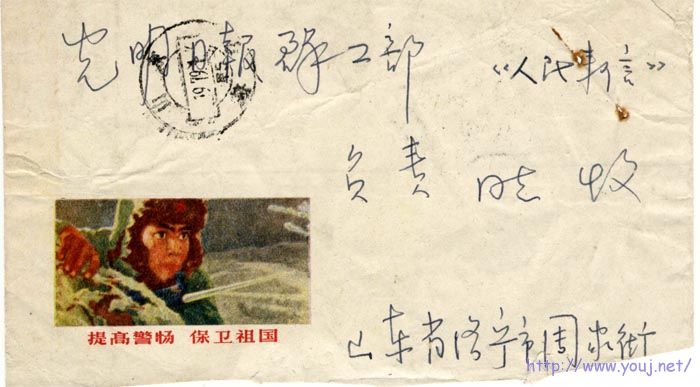 光明日报群工部 《人民来信》
负责 同志 收
提高警惕 保卫祖国
山东省济宁市周家街
http://www.youj.net/